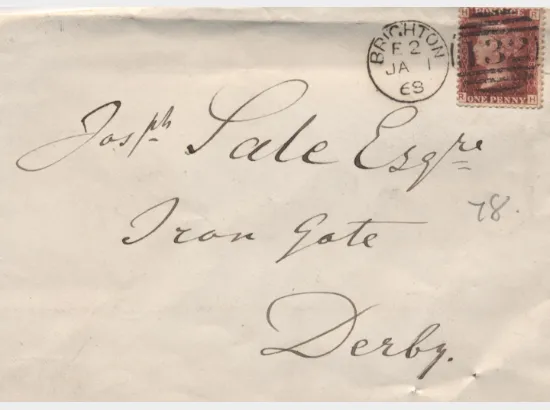 BRIGHTON
E 2
JA 1
68
POSTAGE
138
ONE PENNY
Josph Sale Esqre
78.
Iron Gate
Derby.